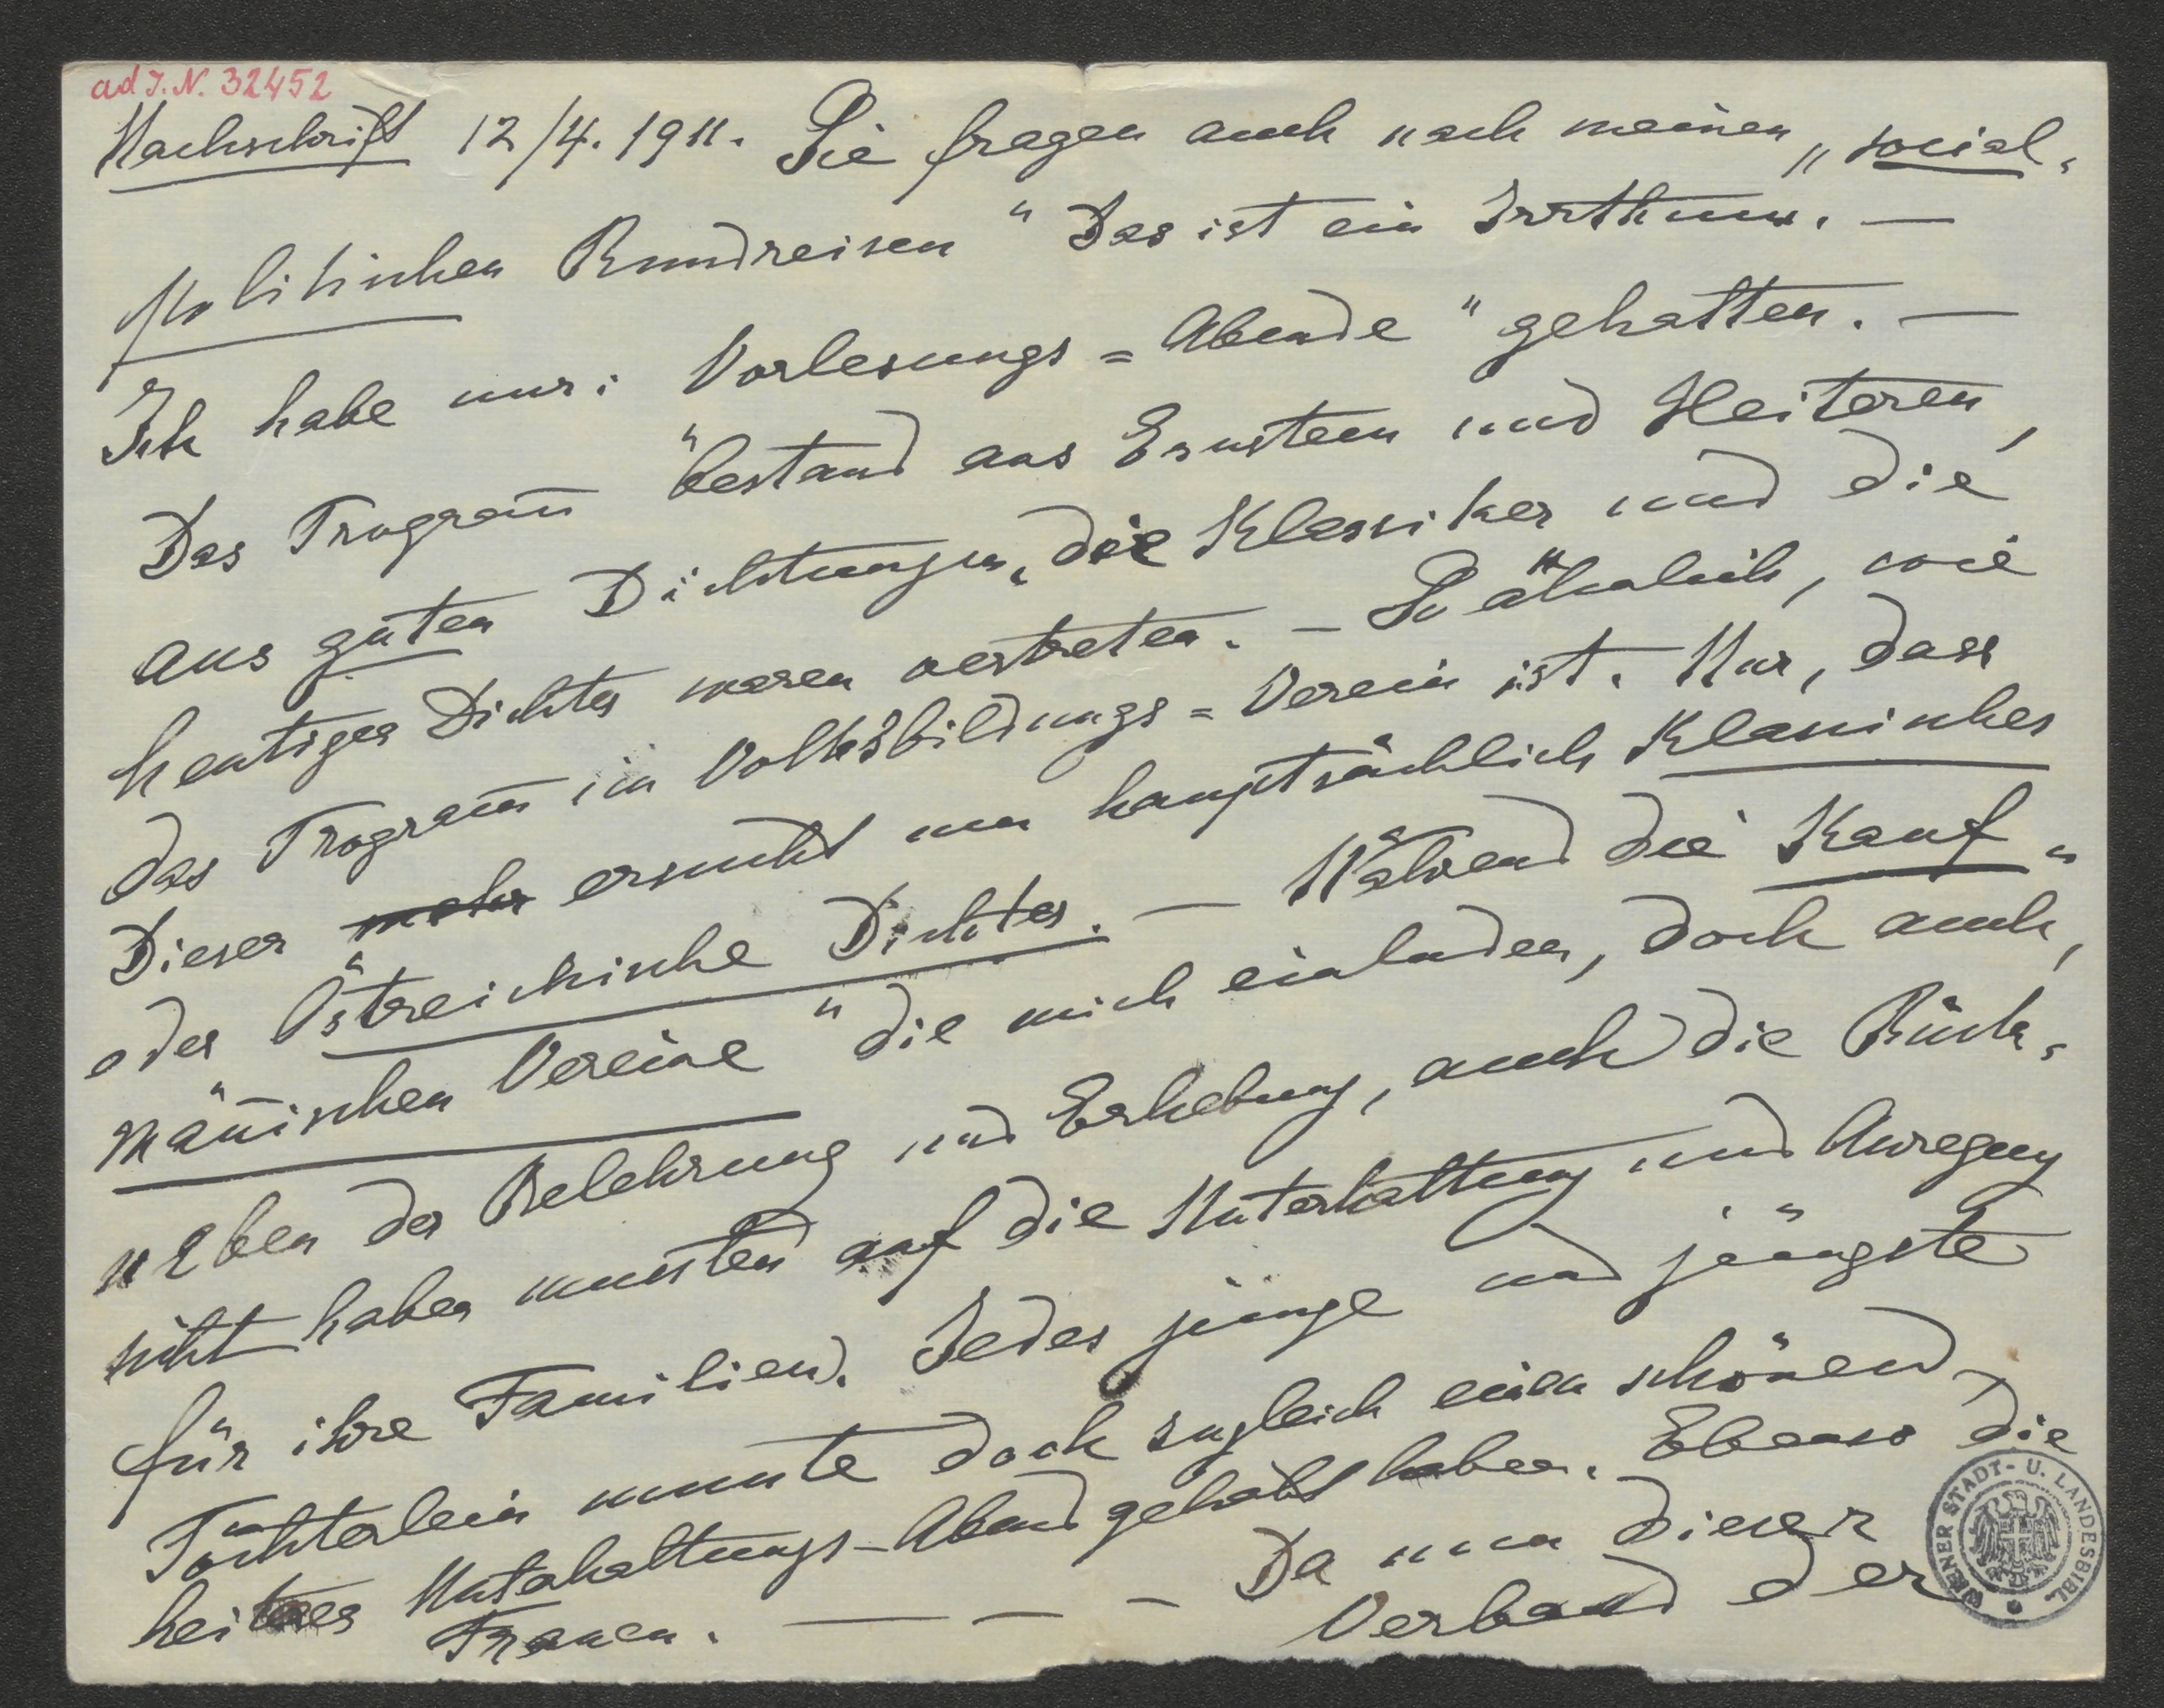 ad I.N. 32452
Nachschrift 12/4. 1911. Sie fragen auch nach meinen „social-
politischen Rundreisen" Das ist ein Irrthum. —
Ich habe nur: „Vorlesungs=Abende" gehalten. —
Das Program̄ bestand aus Ernstem und Heiteren,
aus guten Dichtungen, die Klassiker und die
heutigen Dichter waren vertreten. – So ähnlich, wie
das Program̄ im Volksbildungs=Verein ist. Nur, dass
Dieser mehr ersucht um hauptsächlich Klassisches
oder Östreichische Dichter. — Während die „Kauf-
män̄ischen Vereine" die mich einluden, doch auch,
neben der Belehrung und Erhebung, auch die Rück-
sicht haben mussten auf die Unterhaltung und Anregung
für ihre Familien. Jedes junge und jüngste
Töchterlein musste doch zugleich einen schönen,
heiteres Unterhaltungs-Abend gehabt haben. Ebenso die
Frauen. — – – Da nun dieser
Verband der
WIENER STADT- U. LANDESBIBL.